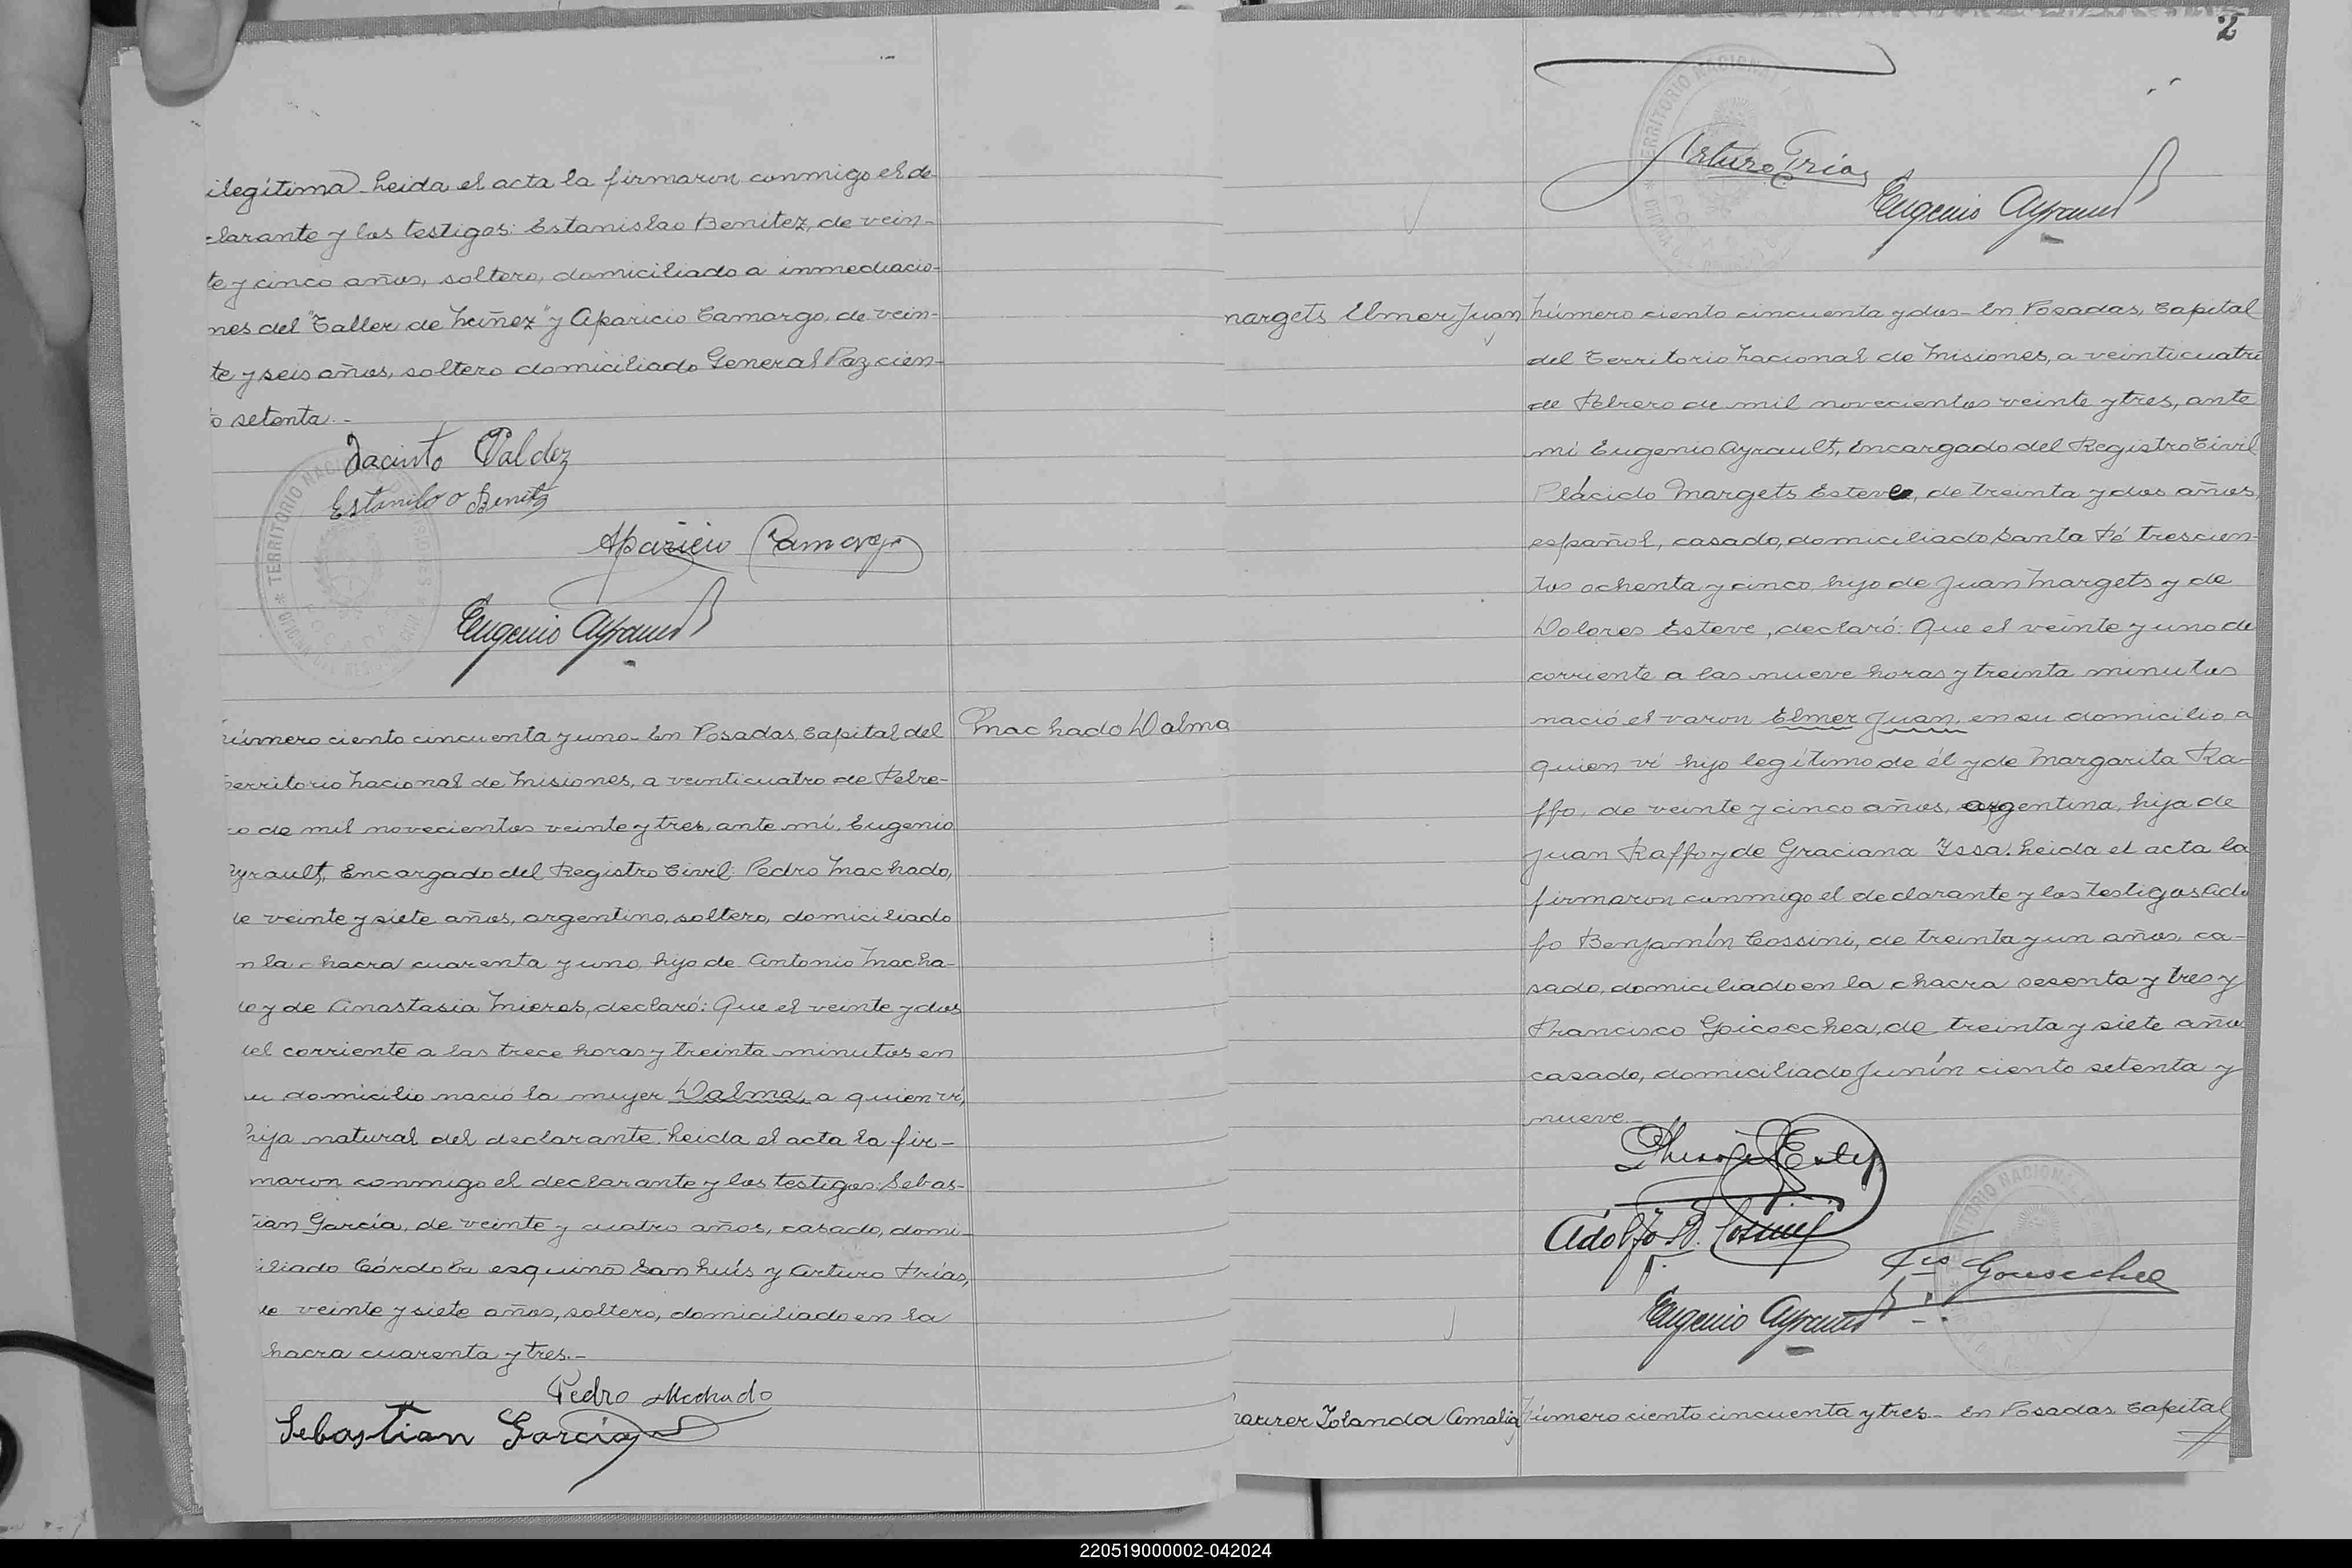 ilegítima. Leida el acta la firmaron conmigo el de-
clarante y los testigos: Estanislao Benitez, de vein-
te y cinco años, soltero, domiciliado a inmediacio-
nes del "Taller de Núñez" y Aparicio Camargo, de vein-
te y seis años, soltero domiciliado General Paz cien-
to setenta.-
Jacinto Valdez
Estanilo o Benitz
Aparicio Camargo
Eugenio Ayrault
Número ciento cincuenta y uno- En Posadas, Capital del
Machado Dalma
Territorio Nacional de Misiones, a veinticuatro de Febre-
ro de mil novecientos veinte y tres, ante mí, Eugenio
Ayrault, Encargado del Registro Civil: Pedro Machado,
de veinte y siete años, argentino, soltero, domiciliado
en la chacra cuarenta y uno, hijo de Antonio Macha-
do y de Anastasia Mieres, declaró: Que el veinte y dos
del corriente a las trece horas y treinta minutos en
su domicilio nació la mujer Dalma, a quien ví,
hija natural del declarante. Leida el acta la fir-
maron conmigo el declarante y los testigos: Sebas-
tian García, de veinte y cuatro años, casado, domi-
ciliado Córdoba esquina San Luís y Arturo Frías,
de veinte y siete años, soltero, domiciliado en la
chacra cuarenta y tres.-
Pedro Machado
Sebastian García
2
TERRITORIO NACIONAL
Arturo Frias
Eugenio Ayrault
Margets Elmer Juan
Número ciento cincuenta y dos- En Posadas, Capital
del Territorio Nacional de Misiones, a veinticuatro
de Febrero de mil novecientos veinte y tres, ante
mí Eugenio Ayrault, Encargado del Registro Civil
Plácido Margets Esteve, de treinta y dos años,
español, casado, domiciliado Santa Fé trescien-
tos ochenta y cinco, hijo de Juan Margets y de
Dolores Esteve, declaró: Que el veinte y uno de
corriente a las nueve horas y treinta minutos
nació el varon Elmer Juan, en su domicilio, a
quien ví hijo legítimo de él y de Margarita Ra-
ffo, de veinte y cinco años, argentina, hija de
Juan Raffo y de Graciana Issa. Leida el acta la
firmaron conmigo el declarante y los testigos Adol
fo Benjamín Cossini, de treinta y un años, ca-
sado, domiciliado en la chacra sesenta y tres y
Francisco Goicoechea, de treinta y siete años
casado, domiciliado Junín ciento setenta y
nueve.-
Adolfo B. Cossini
Fco Goicoechea
Eugenio Ayrault
Yolanda Amalia
Número ciento cincuenta y tres- En Posadas, Capital
220519000002-042024